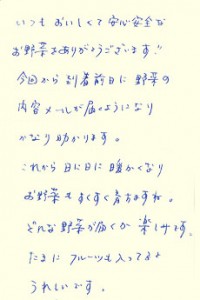 いつもおいしくて安心安全な
お野菜をありがとうございます!!
今回から到着前日に野菜の
内容メールが届くようになり
かなり助かります。
これから日に日に暖かくなり
お野菜もすくすく育ちますね。
どんな野菜が届くか楽しみです。
たまにフルーツも入ってると
うれしいです。